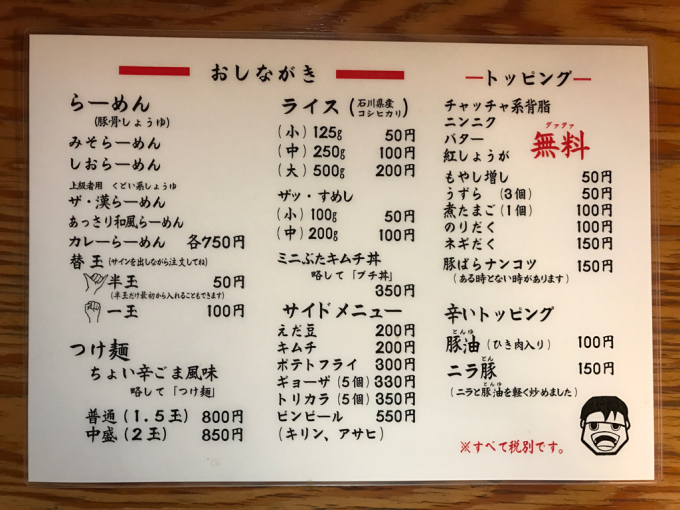 おしながき
らーめん
(豚骨しょうゆ)
みそらーめん
しおらーめん
上級者用 くどい系しょうゆ
ザ・漢らーめん
あっさり和風らーめん
カレーらーめん 各750円
替玉(サインを出しながら注文してね)
半玉 50円
(半玉だけ最初から入れることもできます)
一玉 100円
つけ麺
ちょい辛ごま風味
略して「つけ麺」
普通(1.5玉) 800円
中盛(2玉) 850円
ライス(石川県産
コシヒカリ)
(小)125g 50円
(中)250g 100円
(大)500g 200円
ザッ・すめし
(小)100g 50円
(中)200g 100円
ミニぶたキムチ丼
略して「ブチ丼」
350円
サイドメニュー
えだ豆 200円
キムチ 200円
ポテトフライ 300円
ギョーザ(5個)330円
トリカラ(5個)350円
ビンビール 550円
(キリン、アサヒ)
トッピング
チャッチャ系背脂
ニンニク
バター
紅しょうが
ダァダァ
無料
もやし増し 50円
うずら(3個) 50円
煮たまご(1個) 100円
のりだく 100円
ネギだく 150円
豚ばらナンコツ 150円
(ある時とない時があります)
辛いトッピング
とんゆ
豚油(ひき肉入り) 100円
とん
ニラ豚 150円
とんゆ
(ニラと豚油を軽く炒めました)
※すべて税別です。